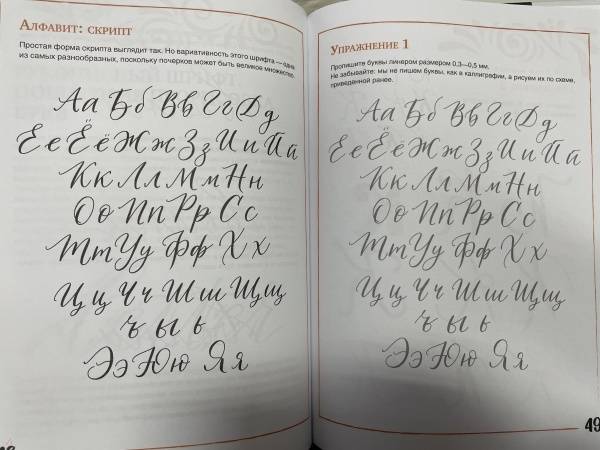 Алфавит: скрипт
Простая форма скрипта выглядит так. Но вариативность этого шрифта — одна
из самых разнообразных, поскольку почерков может быть великое множество.
Аа Бб Вв Гг Дд
Ее Ёё Жж Зз Ии Йй
Кк Лл Мм Нн
Оо Пп Рр Сс
Тт Уу Фф Хх
Цц Чч Шш Щщ
ъ ы ь
Ээ Юю Яя
Упражнение 1
Пропишите буквы линером размером 0,3—0,5 мм.
Не забывайте: мы не пишем буквы, как в каллиграфии, а рисуем их по схеме,
приведённой ранее.
Аа Бб Вв Гг Дд
Ее Ёё Жж Зз Ии Йй
Кк Лл Мм Нн
Оо Пп Рр Сс
Тт Уу Фф Хх
Цц Чч Шш Щщ
ъ ы ь
Ээ Юю Яя
49